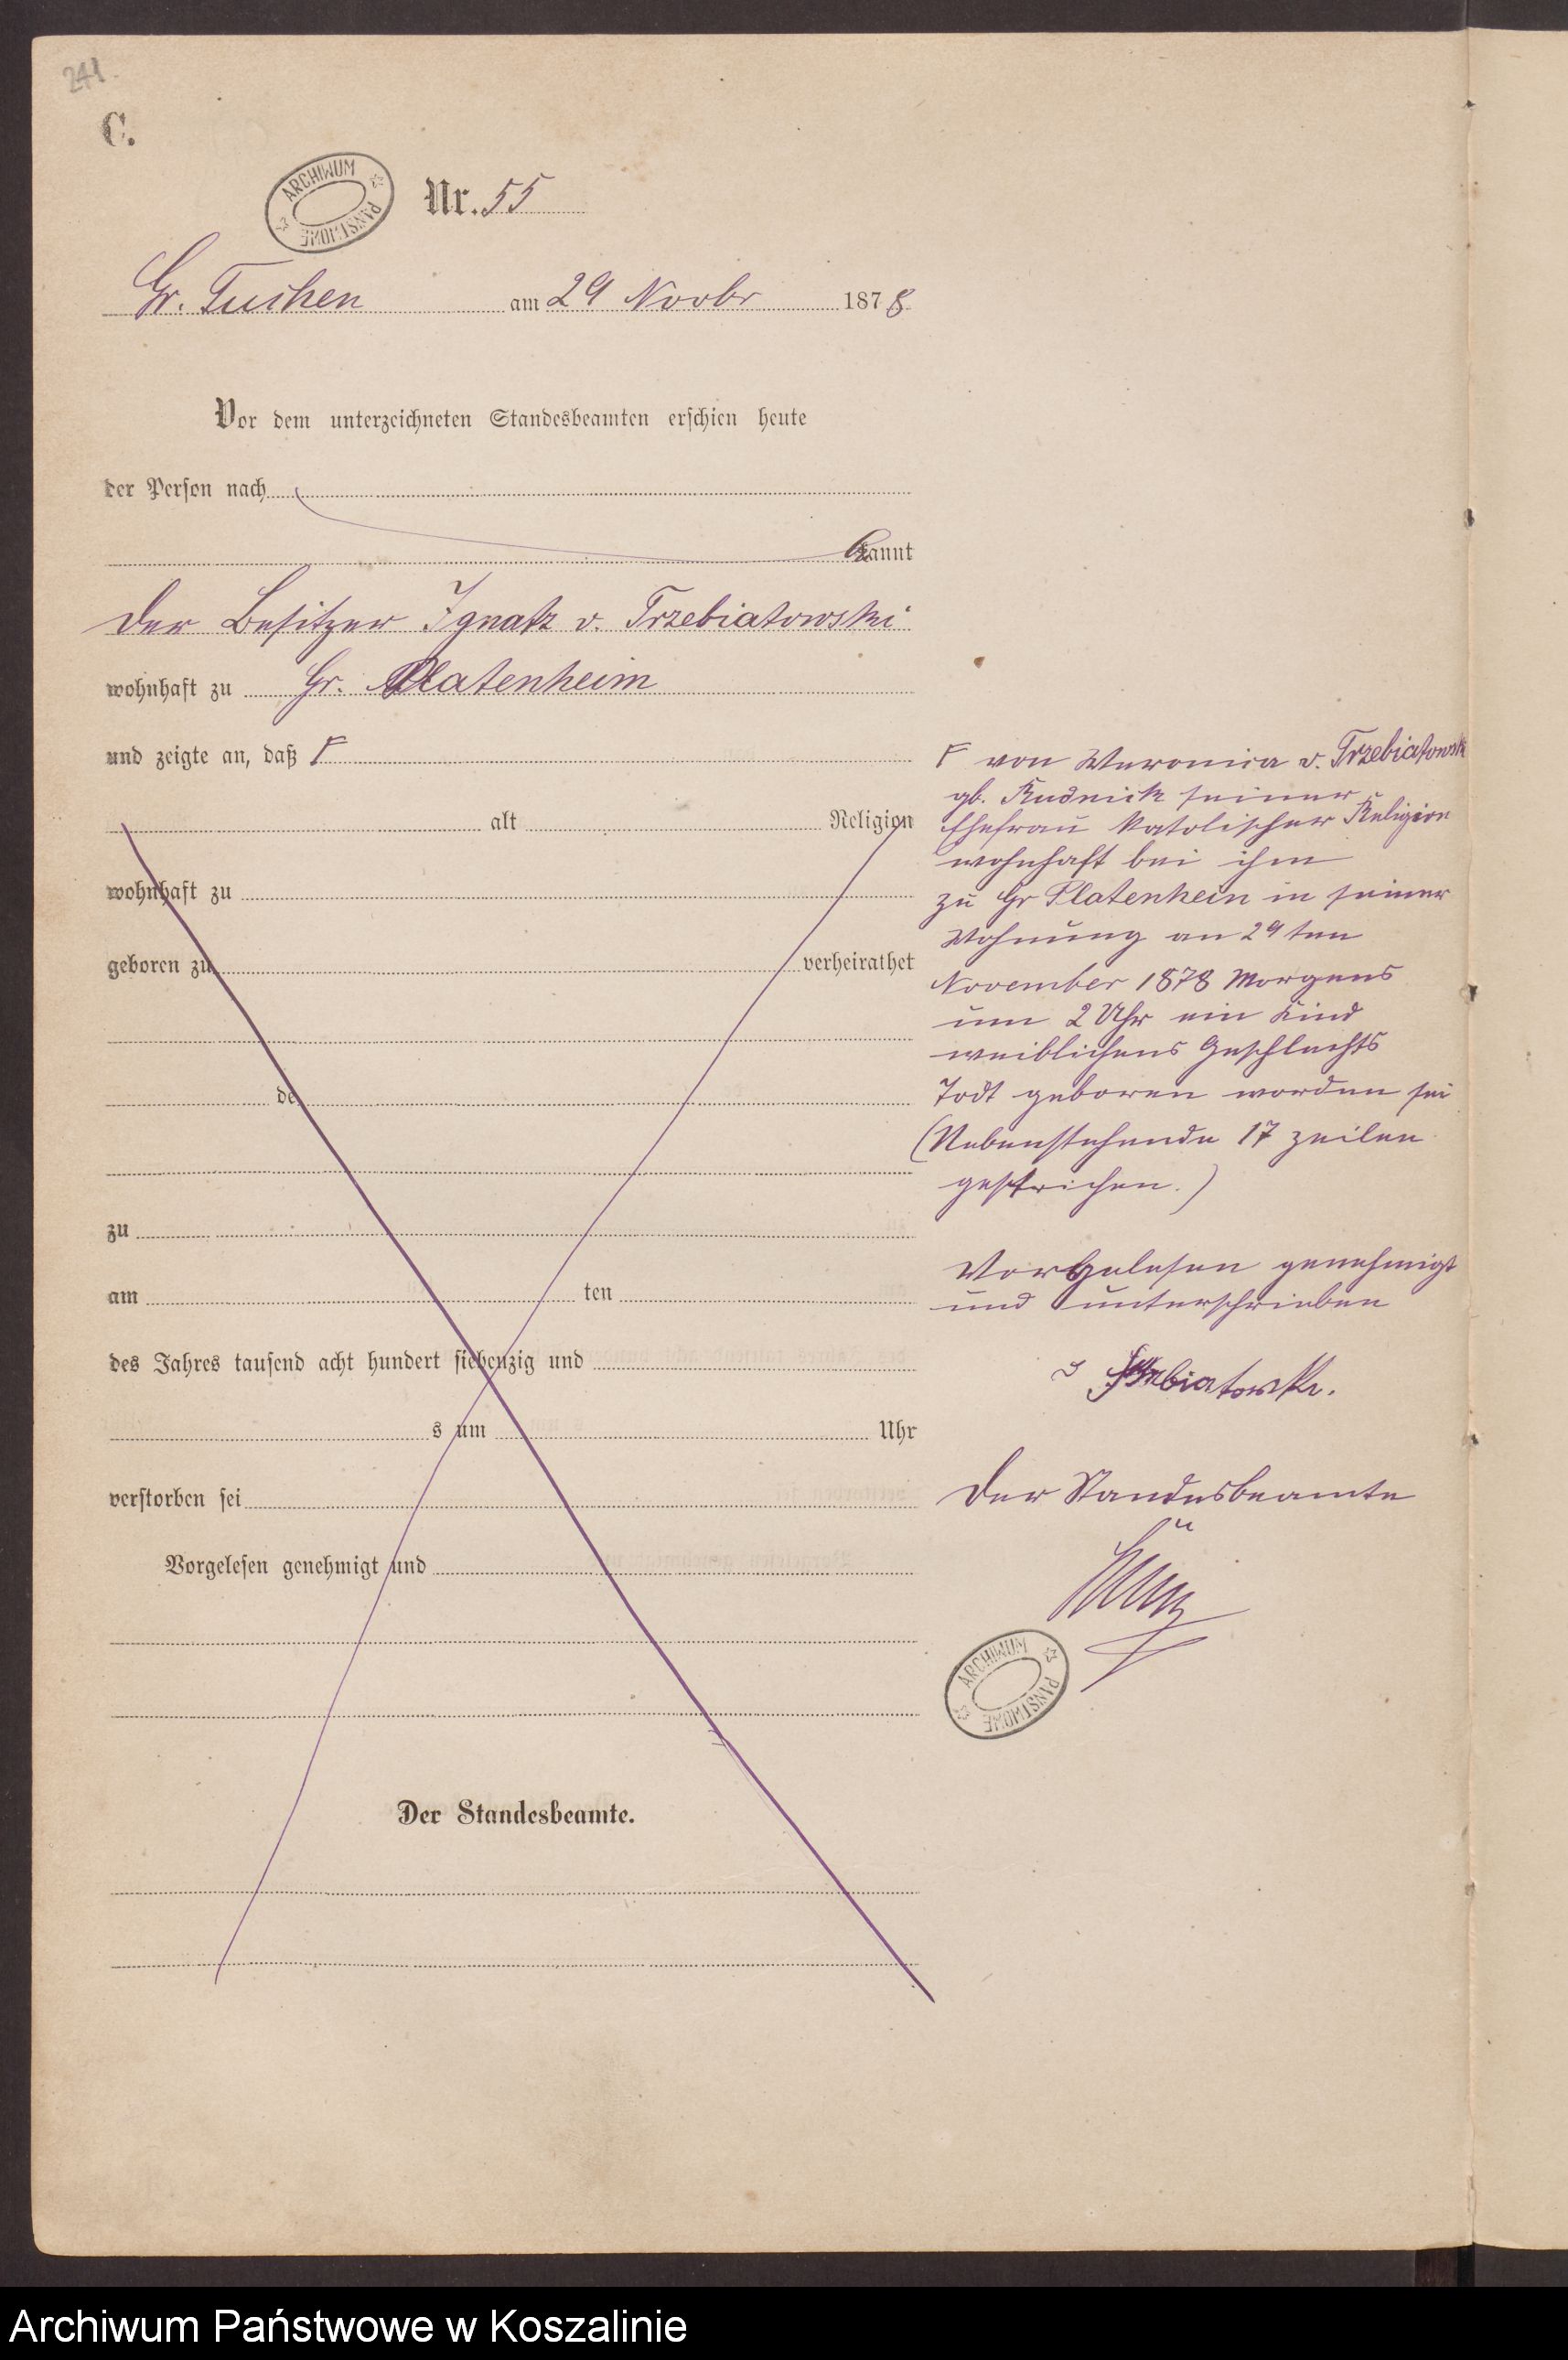 241.
C.
ARCHIWUM PAŃSTWOWE
Nr. 55
Gr. Tuchen am 29 Novbr 1878
Vor dem unterzeichneten Standesbeamten erschien heute
der Person nach
bekannt
Der Besitzer Ignatz v. Trzebiatowski
wohnhaft zu Gr. Platenheim
und zeigte an, daß F
alt Religion
wohnhaft zu
geboren zu verheirathet
de
zu
am ten
des Jahres tausend acht hundert siebenzig und
s um Uhr
verstorben sei
Vorgelesen genehmigt und
Der Standesbeamte.
F von Weronica v. Trzebiatowsk
gb. Rudnick seiner
Ehefrau katolischer Religion
wohnhaft bei ihm
zu Gr Platenhein in seiner
Wohnung an 29 ten
November 1878 Morgens
um 2 Uhr ein Kind
weiblichens Geschlechts
Todt geboren worden sei
(Nebenstehende 17 zeilen
gestrichen.)
Vorgelesen genehmigt
und unterschrieben
Der Standesbeamte
ARCHIWUM PAŃSTWOWE
Archiwum Państwowe w Koszalinie